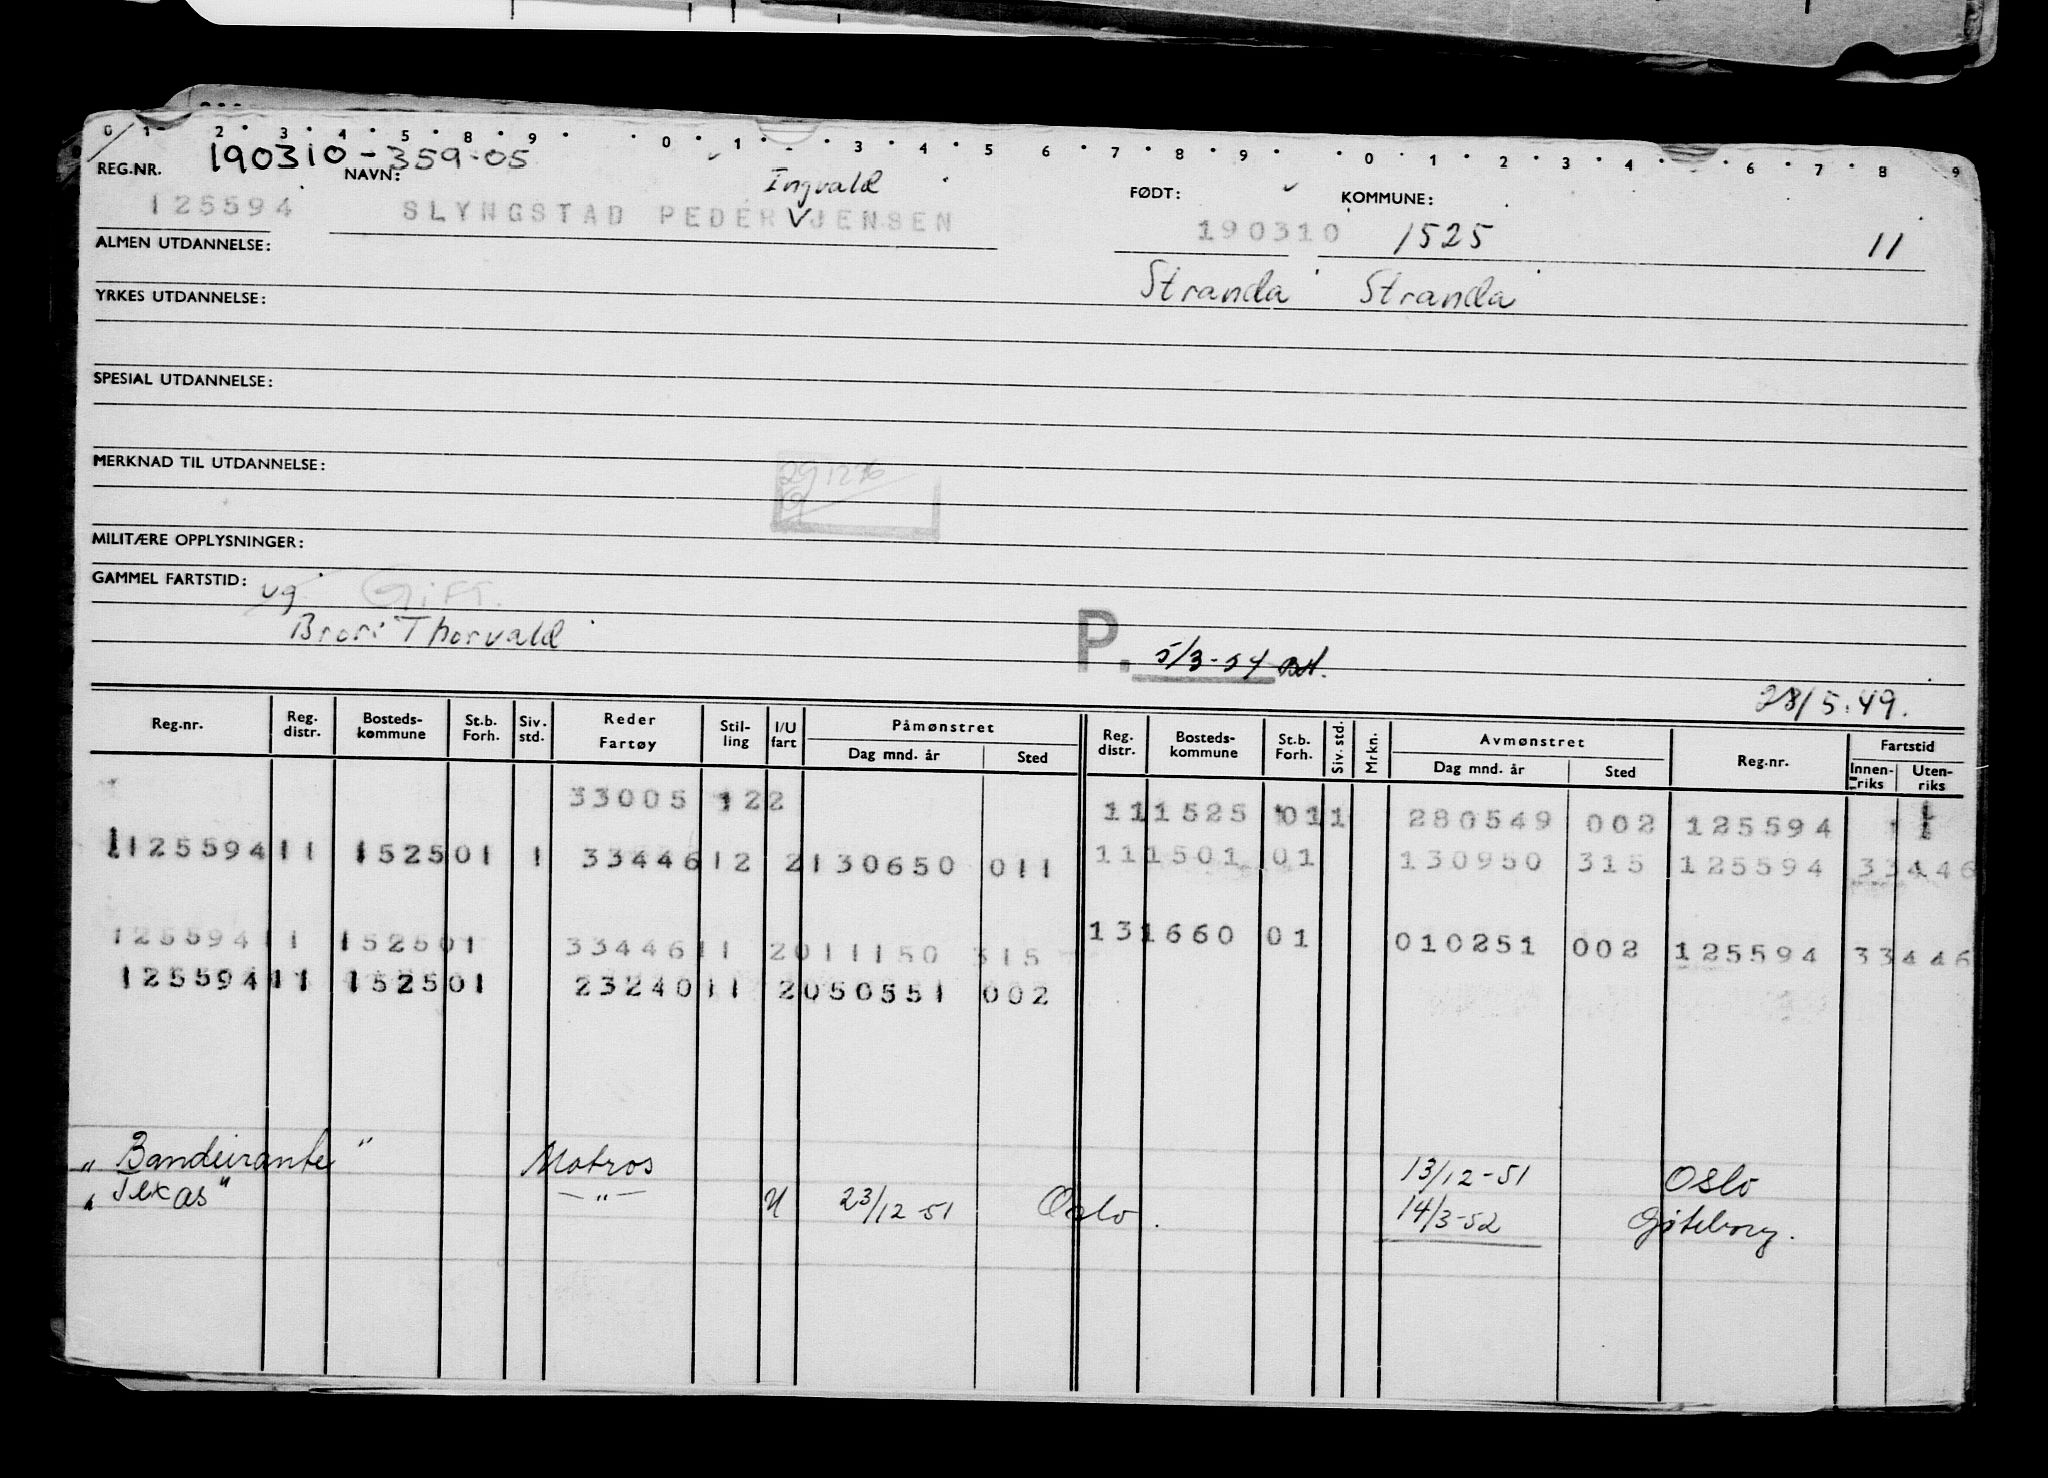 0 1 2 3 4 5 8 9 0 1 3 4 5 6 7 8 9 0 1 2 3 4 6 7 8 9
REG.NR. 190310-359-05
NAVN: Ingvald FØDT: KOMMUNE:
125594 SLYNGSTAD PEDER V JENSEN 190310 1525 11
ALMEN UTDANNELSE:
Stranda Stranda
YRKES UTDANNELSE:
SPESIAL UTDANNELSE:
MERKNAD TIL UTDANNELSE:
291276
MILITÆRE OPPLYSNINGER:
GAMMEL FARTSTID: ug Gift.
Bror: Thorvald
P. 5/3-54
28/5.49.
Reg.nr. Reg. distr. Bosteds-kommune St.b. Forh. Siv. std. Reder Fartøy Stil-ling I/U fart Påmønstret Dag mnd. år Sted Reg. distr. Bosteds-kommune St.b. Forh. Siv. std. Mrkn. Avmønstret Dag mnd. år Sted Reg.nr. Fartstid Innen-riks Uten-riks
33005 122 11 1525 01 1 280549 002 125594
125594 11 1525 01 1 33446 12 2 130650 011 11 1501 01 130950 315 125594 33446
125594 11 1525 01 33446 11 2 011150 315 13 1660 01 010251 002 125594 33446
125594 11 1525 01 23240 11 2 050551 002
"Bandeirante" Matros 13/12-51 Oslo
"Texas" —"— U 23/12-51 Oslo. 14/3-52 Gøteborg.